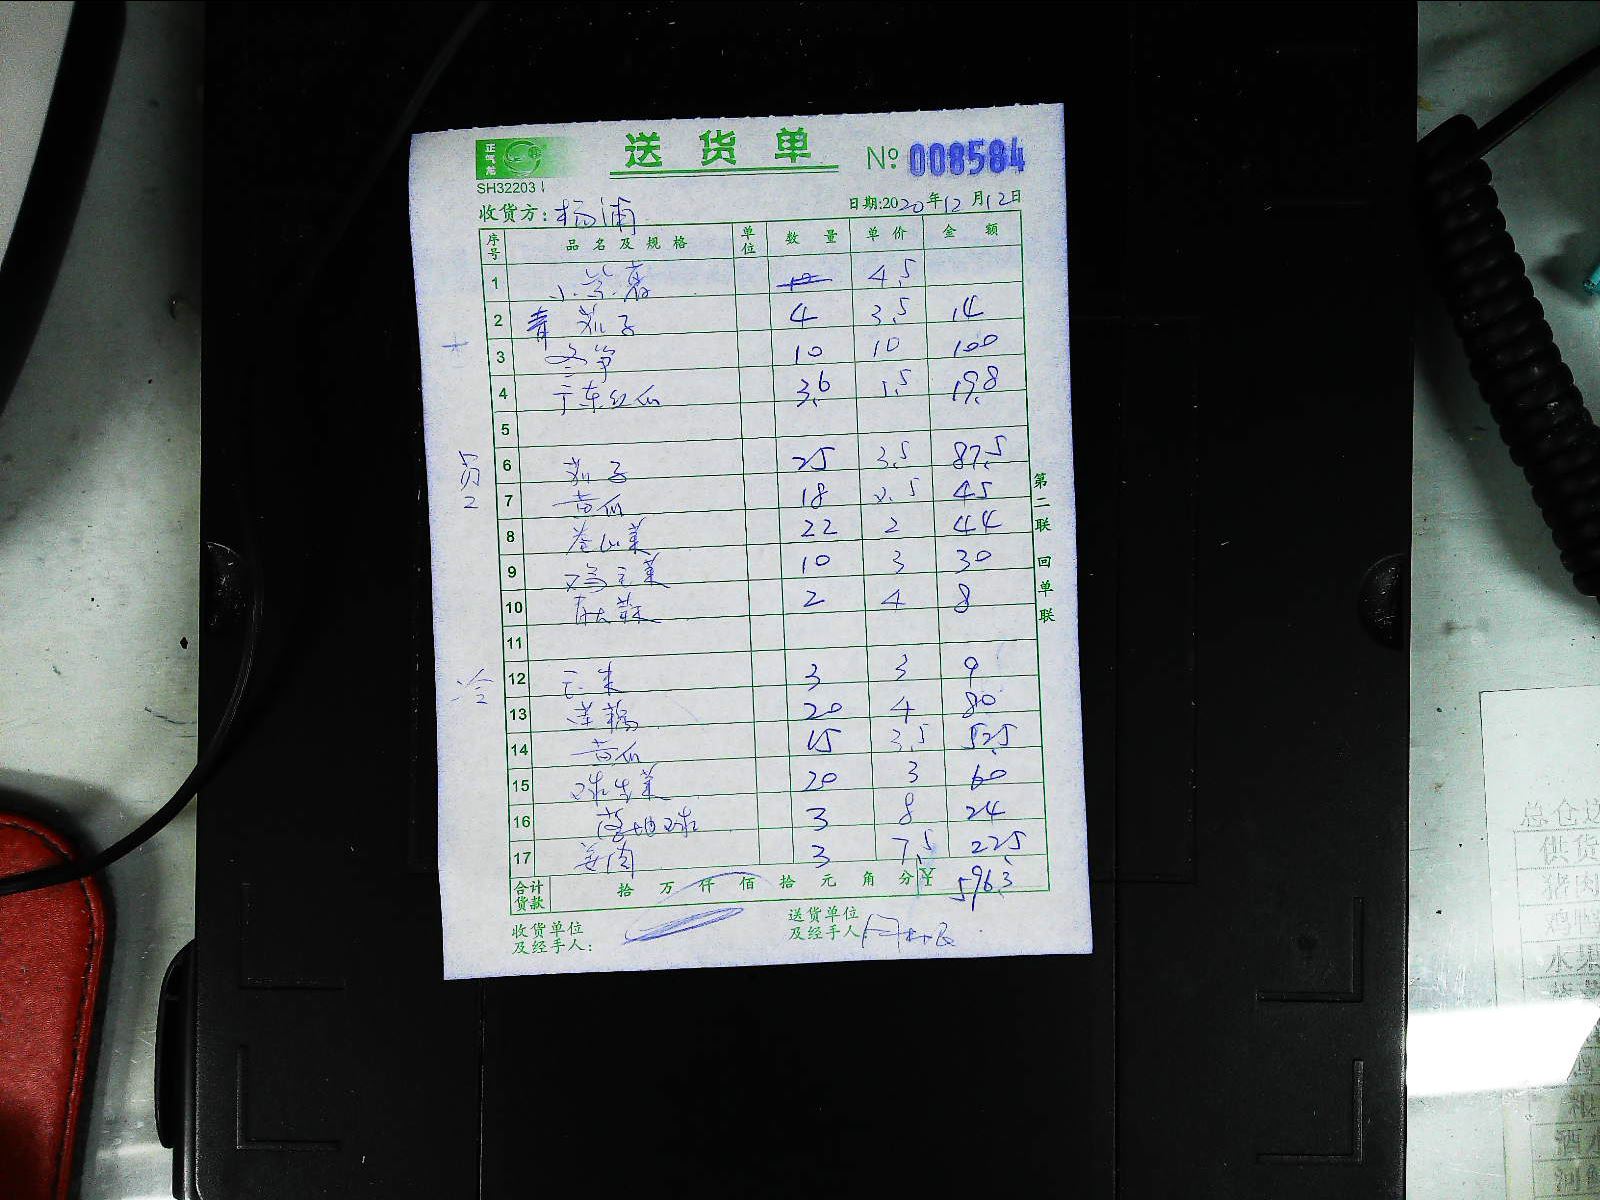 正气龙
送货单 № 008584
SH32203
收货方: 杨浦 日期:2020年12月12日
序号 品名及规格 单位 数量 单价 金额
1 小 4.5
2 青茄子 4 3.5 14
3 冬笋 10 10 100
4 3.6 5.5 19.8
5
员工
6 茄子 25 3.5 87.5
7 黄瓜 18 2.5 45
8 卷心菜 22 2 44
9 鸡毛菜 10 3 30
10 2 4 8
11
冷
12 玉米 3 3 9
13 莲藕 20 4 80
14 黄瓜 15 3.5 52.5
15 球生菜 20 3 60
16 3 8 24
17 姜肉 3 7.5 22.5
合计货款 拾 万 仟 佰 拾 元 角 分 ¥ 596.3
收货单位及经手人:
送货单位及经手人
第二联 回单联
总仓
供货
猪肉
鸡鸭
水果